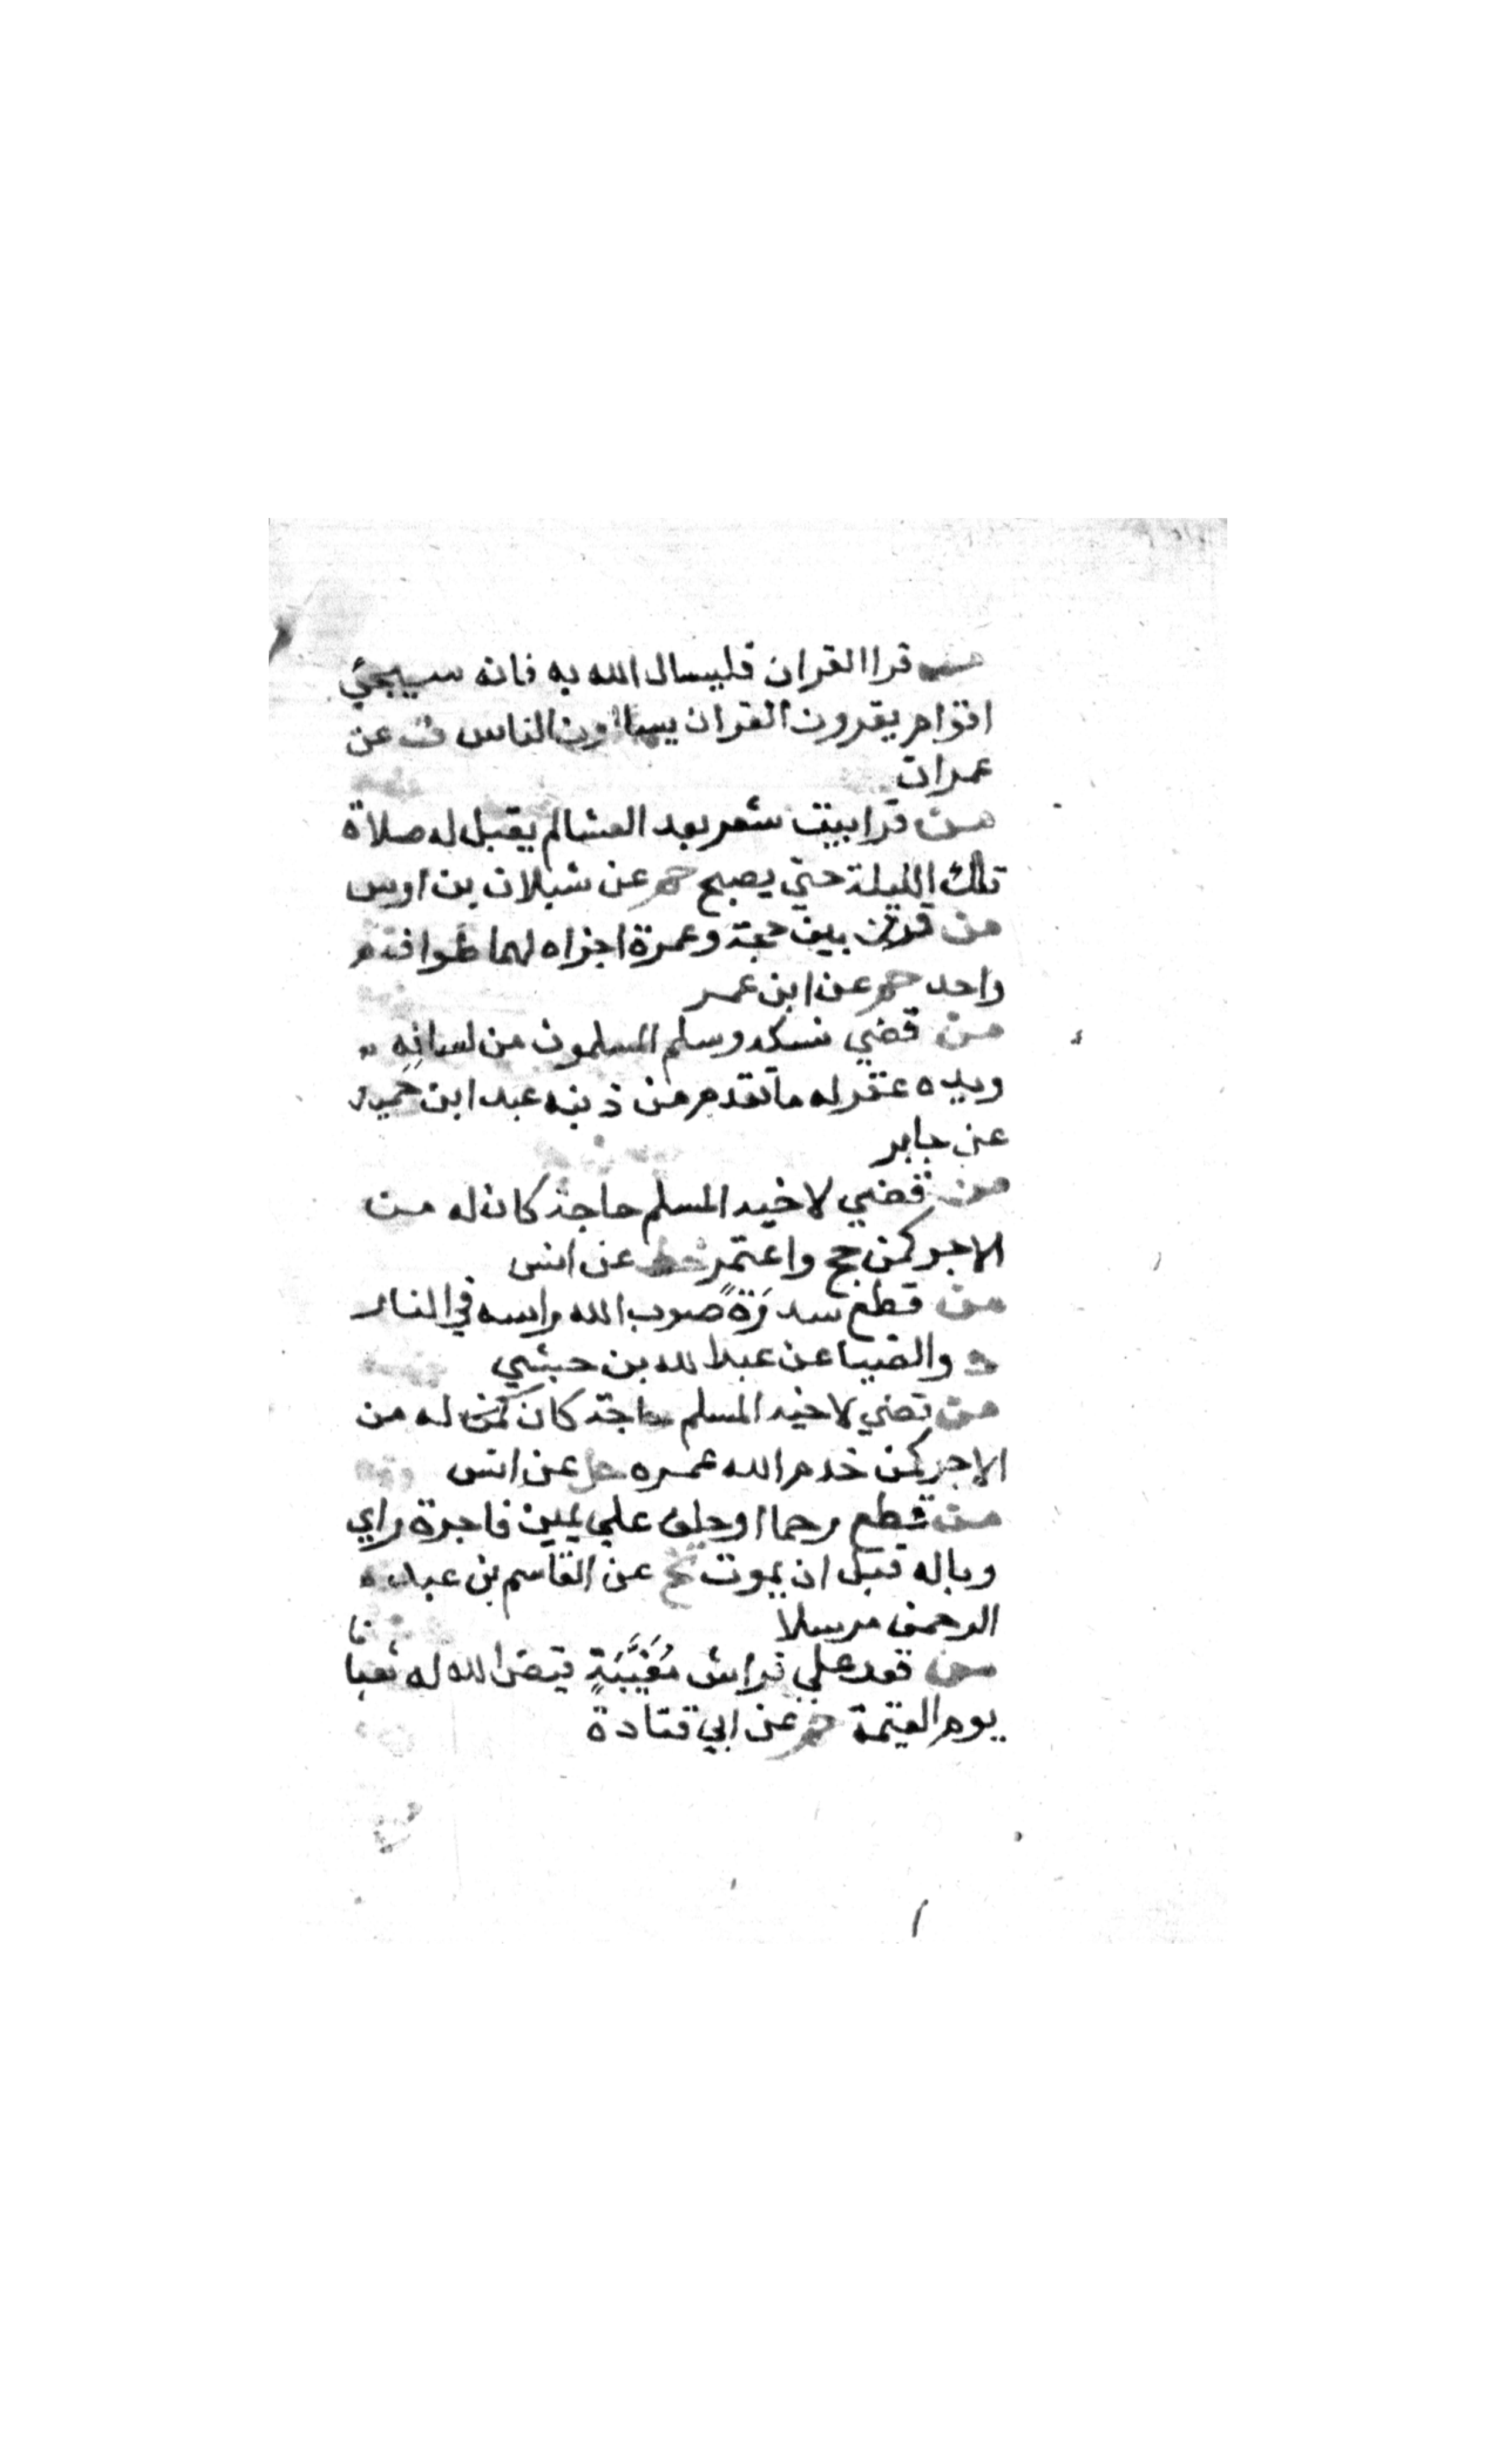 من قرا القران فليسال الله به فانه سيجئ
اقوام يقرون القران يسالون الناس ت عن
عمران
من قرا بيت شعر بعد العشا لم يقبل له صلاة
تلك الليلة حتي يصبح حم عن شبلان بن اوس
من قرن بين حجة وعمرة اجزاه لهما طواف
واحد حم عن ابن عمر
من قضي نسكه وسلم المسلمون من لسانِه
ويده غفر له ما تقدم من ذنبه عبد ابن حميد
عن جابر
من قضي لاخيه المسلم حاجة كان له من
الاجر كمن حج واعتمر خط عن انس
من قطع سدرَةً صوب الله راسه في النار
د والضيا عن عبد الله بن حبشي
من قضي لاخيه المسلم حاجة كان كمن له من
الاجر كمن خدم الله عمره حل عن انس
من قطع رحما او حلف علي يمين فاجرة راي
وباله قبل ان يموت تخ عن القاسم بن عبد
الرحمن مرسلا
من قعد علي فراش مُغَيَّبَةٍ قيض الله له ثعبانا
يوم القيمة حم عن ابي قتادة